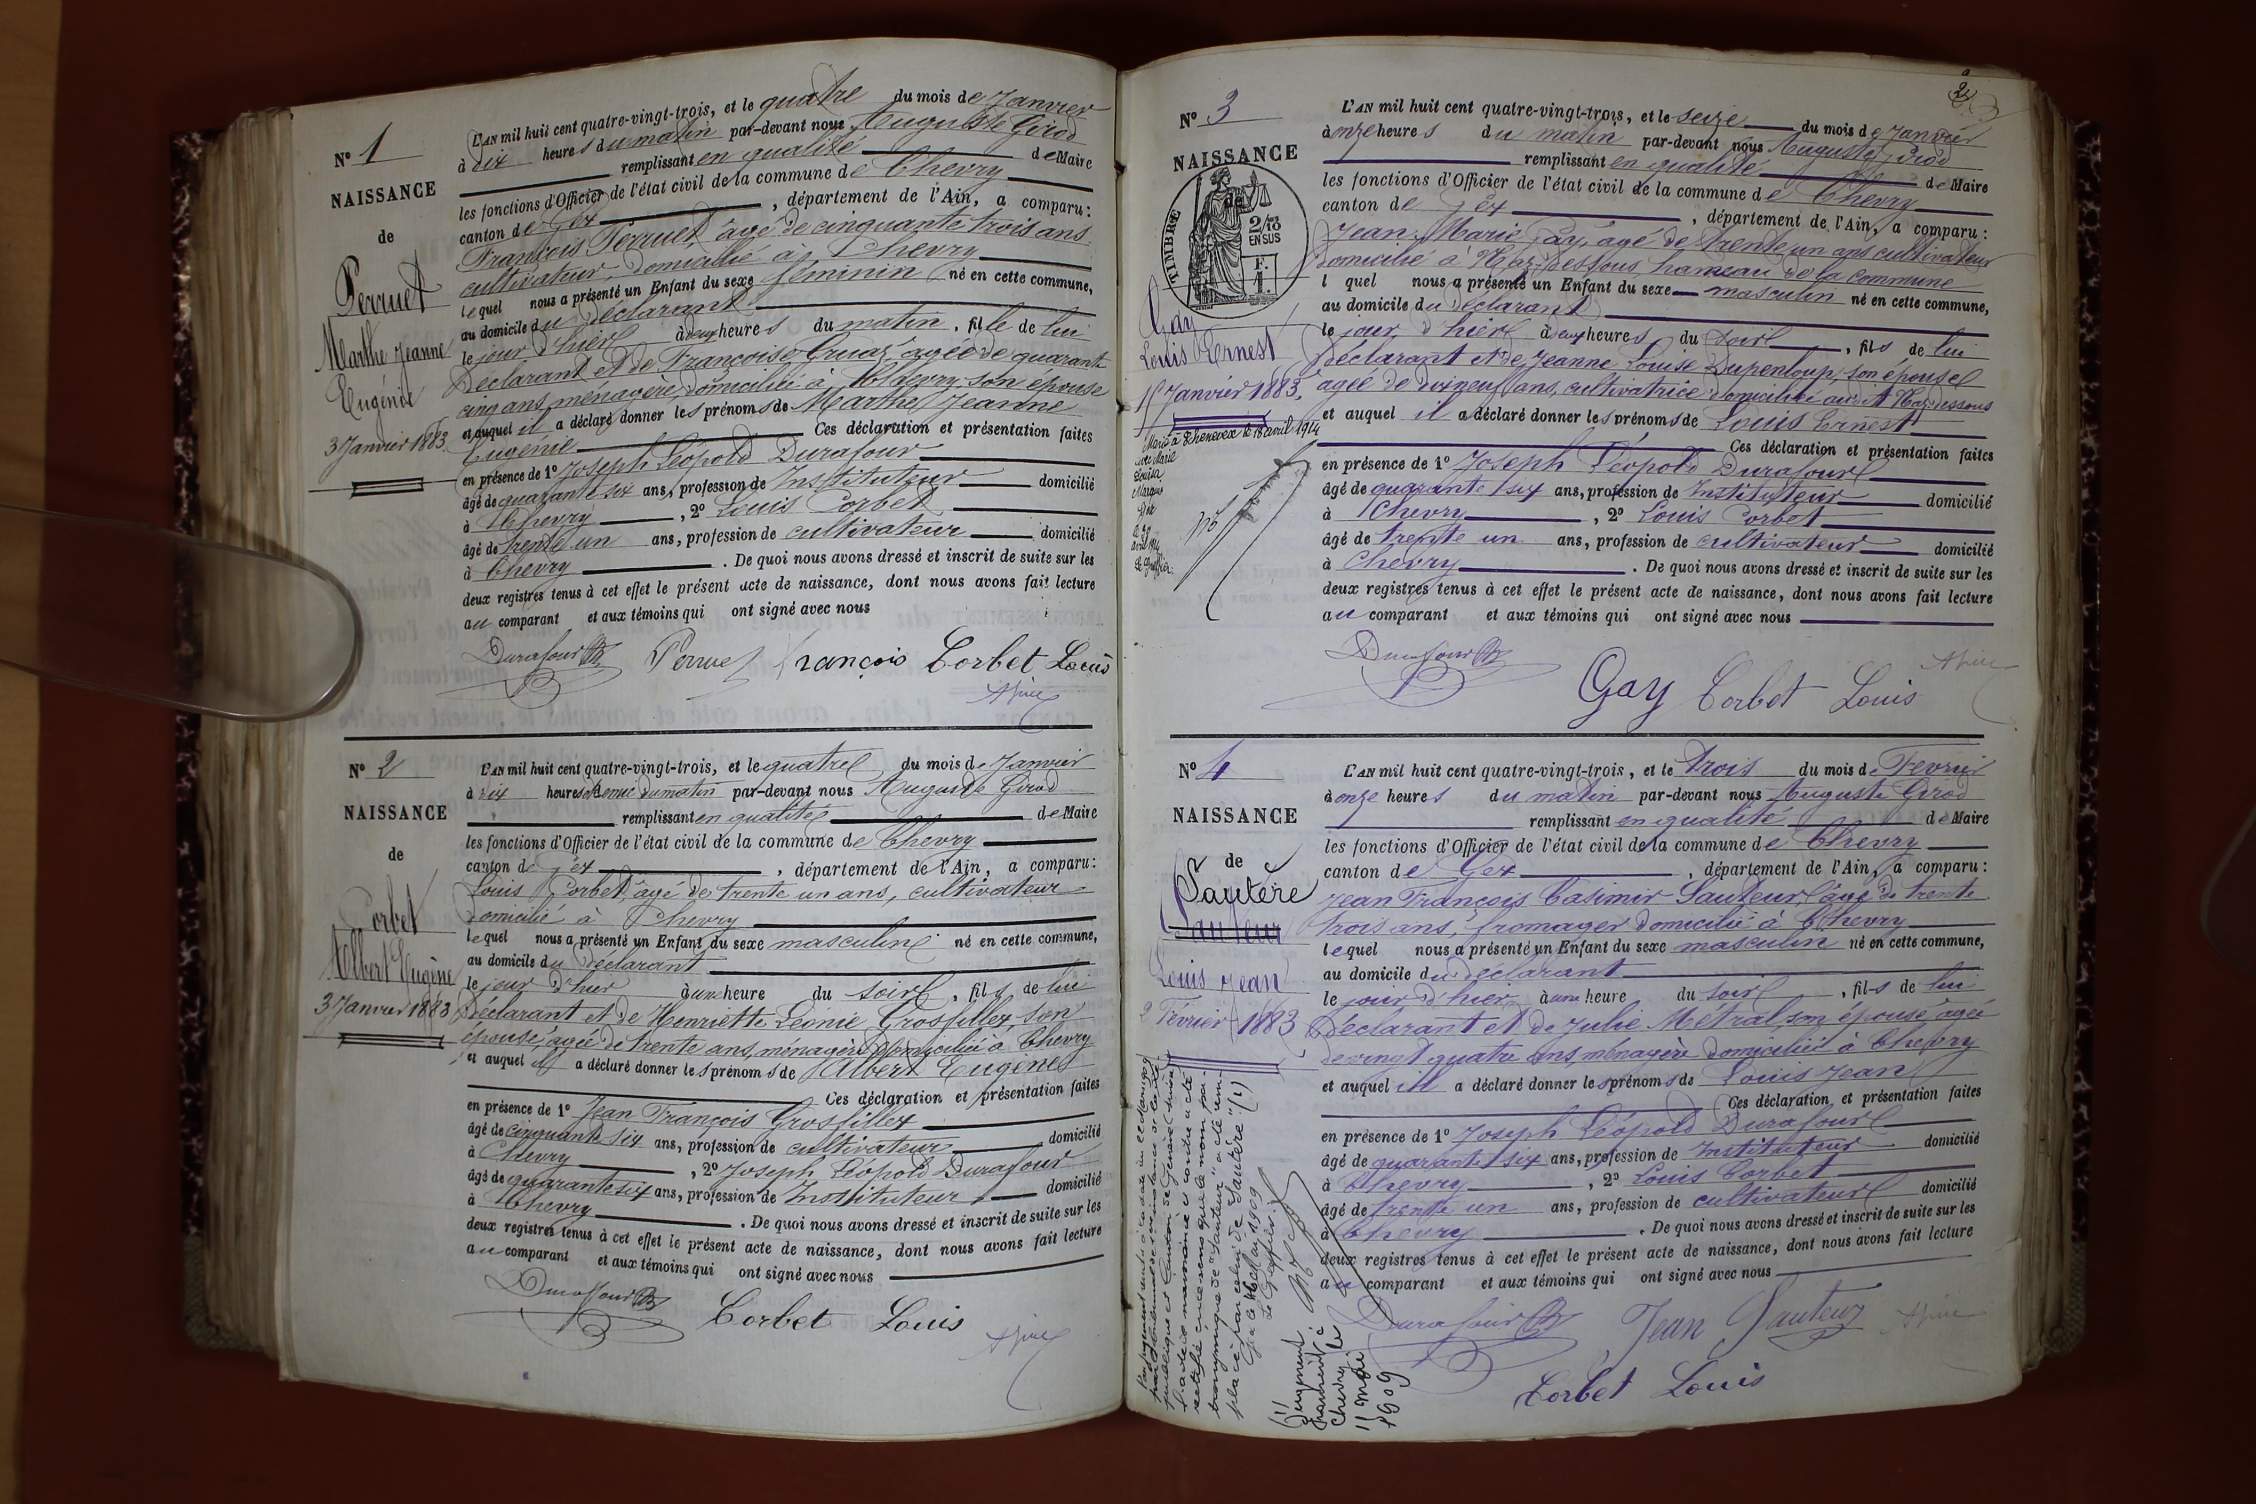 N° 1
NAISSANCE
de
Perruet
Marthe Jeanne
Eugénie
3 Janvier 1883
L'AN mil huit cent quatre-vingt-trois, et le quatre du mois de Janvier
à dix heures du matin par-devant nous Auguste Girod
remplissant en qualité de Maire
les fonctions d'Officier de l'état civil de la commune de Chevry
canton de Gex, département de l'Ain, a comparu:
François Perruet, âgé de cinquante trois ans
cultivateur domicilié à Chevry
lequel nous a présenté un Enfant du sexe féminin né en cette commune,
au domicile du déclarant
le jour d'hier à deux heures du matin, fille de lui
déclarant et de Françoise Gruaz, âgée de quarante
cinq ans, ménagère, domiciliée à Chevry son épouse
et auquel il a déclaré donner les prénoms de Marthe Jeanne
Eugénie Ces déclaration et présentation faites
en présence de 1° Joseph Léopold Durafour
âgé de quarante six ans, profession de Instituteur domicilié
à Chevry, 2° Louis Corbet
âgé de trente un ans, profession de cultivateur domicilié
à Chevry. De quoi nous avons dressé et inscrit de suite sur les
deux registres tenus à cet effet le présent acte de naissance, dont nous avons fait lecture
au comparant et aux témoins qui ont signé avec nous
Durafour Perruet François Corbet Louis
N° 2
NAISSANCE
de
Corbet
Albert Eugène
3 Janvier 1883
L'AN mil huit cent quatre-vingt-trois, et le quatre du mois de Janvier
à dix heures demie du matin par-devant nous Auguste Girod
remplissant en qualité de Maire
les fonctions d'Officier de l'état civil de la commune de Chevry
canton de Gex, département de l'Ain, a comparu:
Louis Corbet, âgé de trente un ans, cultivateur
domicilié à Chevry
lequel nous a présenté un Enfant du sexe masculin né en cette commune,
au domicile du déclarant
le jour d'hier à une heure du soir, fils de lui
déclarant et de Henriette Léonie Grosfillex, son
épouse, âgée de trente ans, ménagère domiciliée à Chevry
et auquel il a déclaré donner les prénoms de Albert Eugène
Ces déclaration et présentation faites
en présence de 1° Jean François Grosfillex
âgé de cinquante six ans, profession de cultivateur domicilié
à Chevry, 2° Joseph Léopold Durafour
âgé de quarante six ans, profession de Instituteur domicilié
à Chevry. De quoi nous avons dressé et inscrit de suite sur les
deux registres tenus à cet effet le présent acte de naissance, dont nous avons fait lecture
au comparant et aux témoins qui ont signé avec nous
Durafour Corbet Louis
2
N° 3
NAISSANCE
de
TIMBRE
2/10
EN SUS
F.
1.
Gay
Louis Ernest
15 Janvier 1883.
Marié à Echenevex le 18 avril 1914
avec Marie
Louisa
L'AN mil huit cent quatre-vingt-trois, et le seize du mois de Janvier
à onze heures du matin par-devant nous Auguste Girod
remplissant en qualité de Maire
les fonctions d'Officier de l'état civil de la commune de Chevry
canton de Gex, département de l'Ain, a comparu:
Jean Marie Gay, âgé de trente un ans cultivateur
domicilié à Naz-dessous, hameau de la commune
l quel nous a présenté un Enfant du sexe masculin né en cette commune,
au domicile du déclarant
le jour d'hier à deux heures du soir, fils de lui
déclarant et de Jeanne Louise Dupenloup, son épouse
âgée de dix neuf ans, cultivatrice domiciliée audit Naz dessous
et auquel il a déclaré donner les prénoms de Louis Ernest
Ces déclaration et présentation faites
en présence de 1° Joseph Léopold Durafour
âgé de quarante six ans, profession de Instituteur domicilié
à Chevry, 2° Louis Corbet
âgé de trente un ans, profession de cultivateur domicilié
à Chevry. De quoi nous avons dressé et inscrit de suite sur les
deux registres tenus à cet effet le présent acte de naissance, dont nous avons fait lecture
au comparant et aux témoins qui ont signé avec nous
Durafour Gay Corbet Louis
N° 4
NAISSANCE
de
Sautère
Sauteur
Louis Jean
2 Février 1883
L'AN mil huit cent quatre-vingt-trois, et le trois du mois de Février
à onze heures du matin par-devant nous Auguste Girod
remplissant en qualité de Maire
les fonctions d'Officier de l'état civil de la commune de Chevry
canton de Gex, département de l'Ain, a comparu:
Jean François Casimir Sauteur, âgé de trente
trois ans, fromager domicilié à Chevry
lequel nous a présenté un Enfant du sexe masculin né en cette commune,
au domicile du déclarant
le jour d'hier, à une heure du soir, fils de lui
déclarant et de Julie Métral, son épouse âgée
de vingt quatre ans, ménagère domiciliée à Chevry
et auquel il a déclaré donner les prénoms de Louis Jean
Ces déclaration et présentation faites
en présence de 1° Joseph Léopold Durafour
âgé de quarante six ans, profession de Instituteur domicilié
à Chevry, 2° Louis Corbet
âgé de trente un ans, profession de cultivateur domicilié
à Chevry. De quoi nous avons dressé et inscrit de suite sur les
deux registres tenus à cet effet le présent acte de naissance, dont nous avons fait lecture
au comparant et aux témoins qui ont signé avec nous
Durafour Jean Sauteur
Corbet Louis
rectifié en ce sens que le nom pa-
tronymique de "Sauteur" a été rem-
placé par celui de "Sautère" (1)
Le Greffier
(1) Jugement
transcrit à
Chevry, le
11 mai
1909